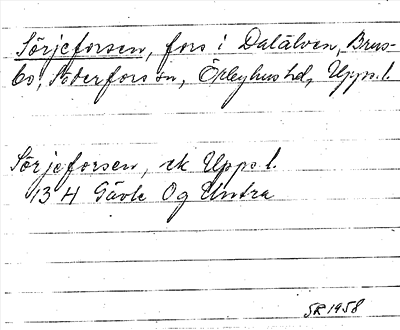 Sörjeforsen, fors i Dalälven, Brus-
bo, Söderfors sn, Örbyhus hd, Upps. l.
Sörjeforsen, rk Upps l.
134 Gävle Og Untra
SR 1958